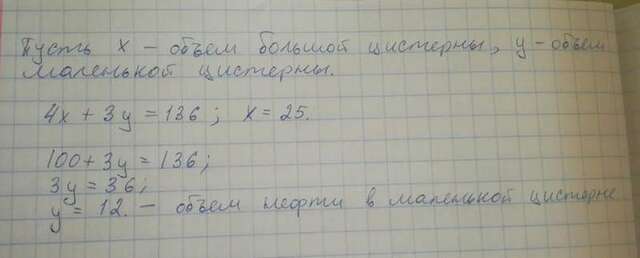 Пусть x – объем большой цистерны, y – объем
маленькой цистерны.
4x + 3y = 136; x = 25.
100 + 3y = 136;
3y = 36;
y = 12. – объем нефти в маленькой цистерне